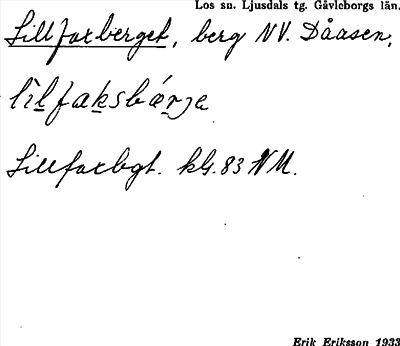 Los sn. Ljusdals tg. Gävleborgs län.
Lillfaxberget, berg NV. Dåasen,
lìlfaksbǽrjə
Lillfaxbgt. kbl. 83 NM.
Erik Eriksson 1933